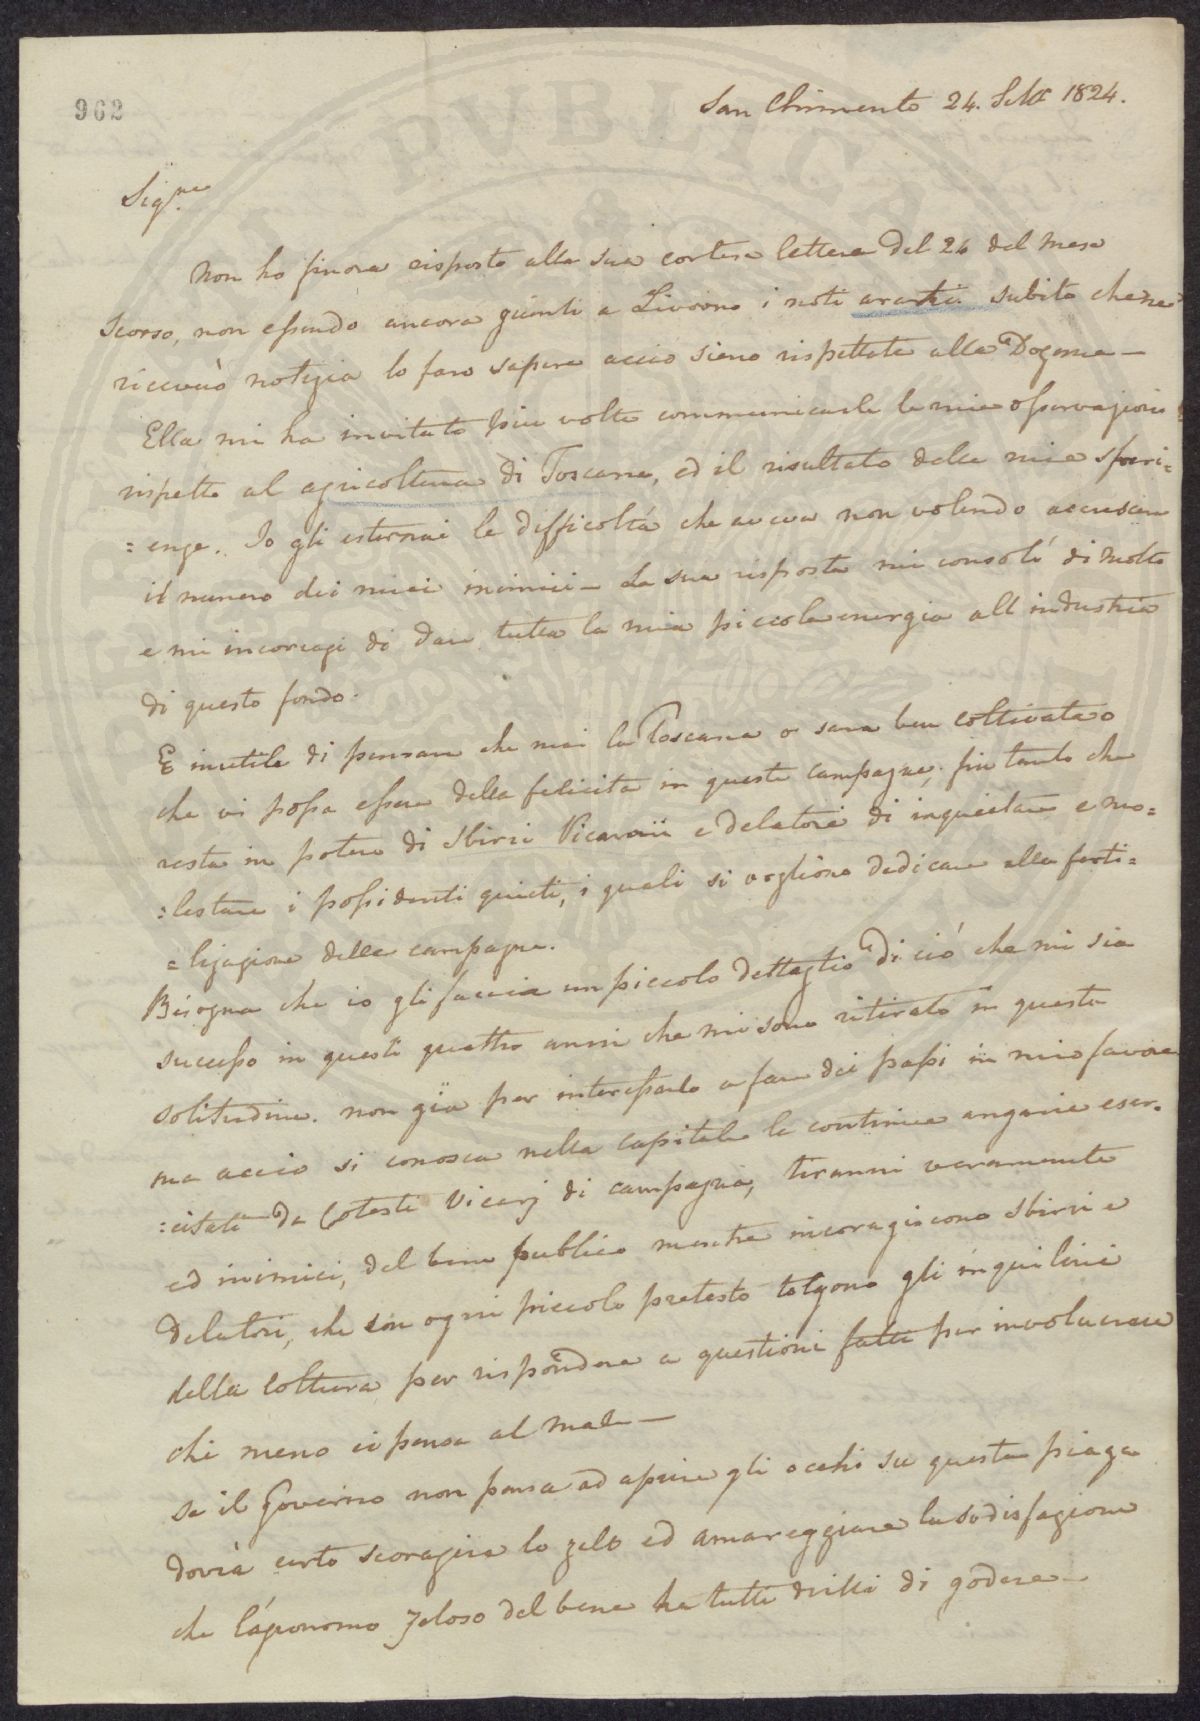 962
San Chimento 24. Sette 1824.
Sigre.
Non ho finora risposto alla sua cortese lettera del 26 del mese
scorso, non essendo ancora giunti a Livorno i noti subito che ne
riceverò notizia lo faro sapere acciò sieno rispettate alla Dogana —
Ella mi ha invitato piu volte communicarle le mie osservazioni
rispetto al agricoltura di Toscana, ed il risultato delle mie speri=
=enze. Io gli esternai le difficoltà che aveva non volendo accrescere
il numero dei miei inimici — La sua risposta mi consolò di molto
e mi incoragi di dare tutta la mia piccola energia all industria
di questo fondo.
E inutile di pensare che mai la Toscana o sara ben coltivata o
che vi possa essere della felicita in queste campagne, fin tanto che
resta in potere di Sbirri Vicarii e delatori di inquietare e mo=
:lestare i possidenti quieti, i quali si vogliono dedicare alla ferti=
=lizazione delle campagne.
Bisogna che io gli faccia un piccolo dettaglio di ciò che mi sia
successo in questi quattro anni che mi sono ritirato in questa
solitudine. non gia per interessarlo a fare dei passi in mio favore
ma acciò si conosca nella capitale le continue angarie eser=
:citate da Cotesti Vicarj di campagna, tiranni veramente
ed inimici, del bene publico mentre incoragiscono Sbirri e
delatori, che con ogni piccolo pretesto tolgono gli inquilini
della coltura per rispondere a questioni fatte per involucrare
chi meno ci pensa al male —
se il Governo non pensa ad aprire gli occhi su questa piaga
dovrà certo scoragire lo zelo ed amareggiare la sodisfazione
che l'agronomo zeloso del bene ha tutti dritti di godere —